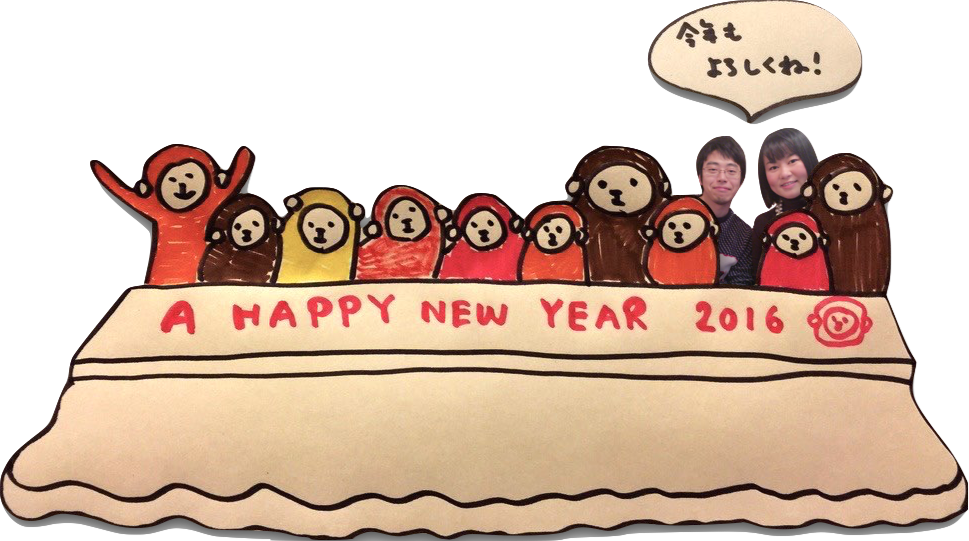 今年も
よろしくね!
A HAPPY NEW YEAR 2016